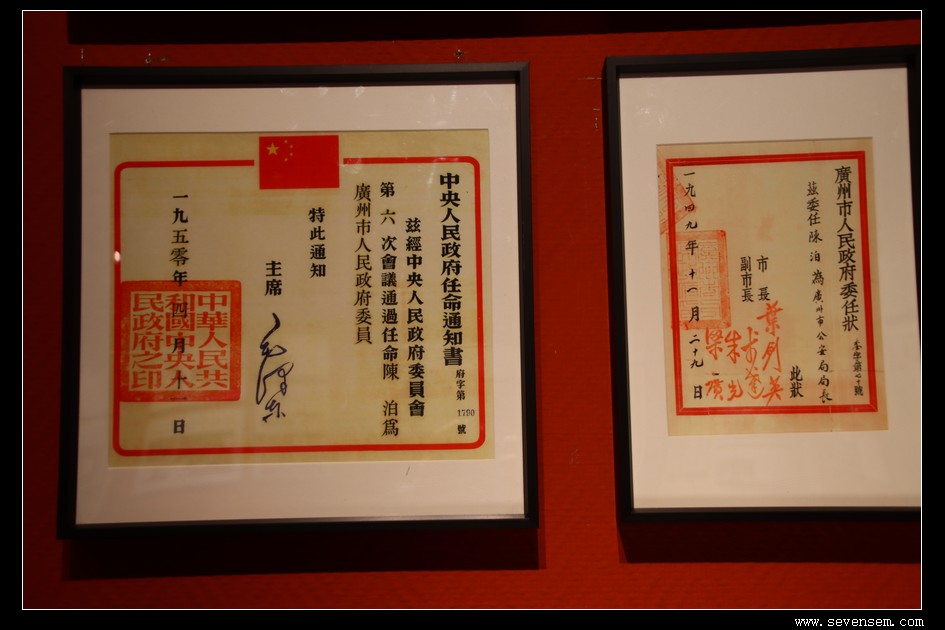 中央人民政府任命通知書
府字第1790號
茲經中央人民政府委員會
第六次會議通過任命陳泊爲
廣州市人民政府委員
特此通知
主席
毛澤東
一九五零年四月十一日
中華人民共
和國中央人
民政府之印
廣州市人民政府委任狀
茲委任陳泊為廣州市公安局局長
此狀
市長
葉劍英
副市長
朱光
一九四九年十一月二十九日
www.sevensem.com